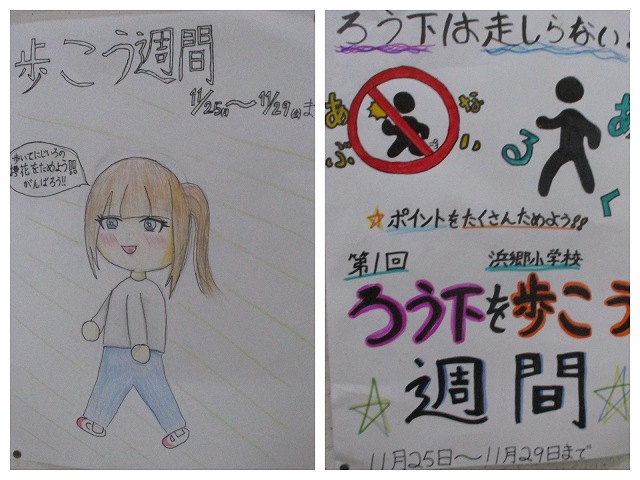 歩こう週間
11/25(月)～11/29(金)ま
歩いてにじいろの
花をためよう!!
がんばろう!!
ろう下は走しらない
あぶ
ない
ある
く
☆ポイントをたくさんためよう!!
第1回 浜郷小学校
ろう下を歩こう
週間
11月25日～11月29日まで